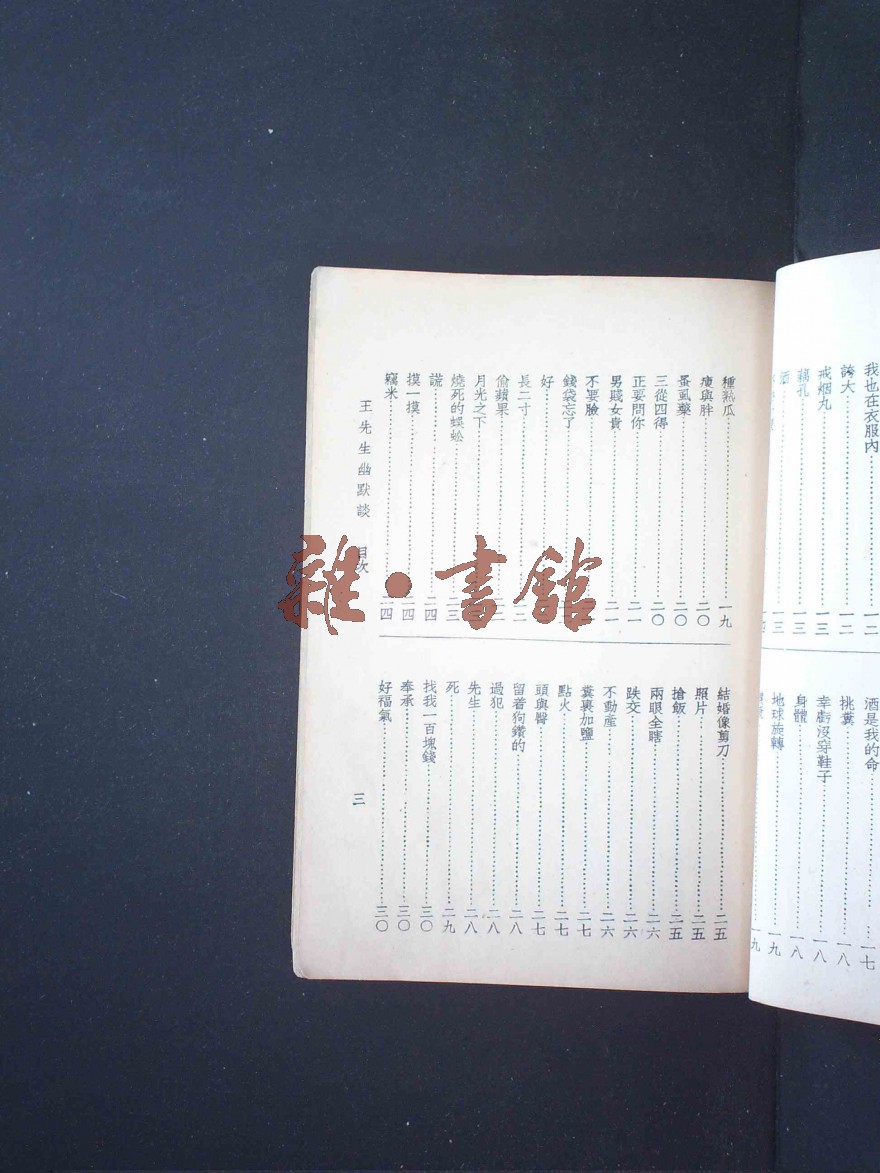 我也在衣服內……一二
誇大……一二
戒烟丸……一三
竊孔……一三
酒……一三
酒是我的命……一七
挑糞……一八
幸虧沒穿鞋子……一八
身體……一八
地球旋轉……一九
一九
種熟瓜……一九
瘦與胖……二〇
蚤虱藥……二〇
三從四得……二〇
正要問你……二一
男賤女貴……二一
不要臉……
錢袋忘了……
好……
長二寸……
偷蘋果……
月光之下……
燒死的蜈蚣……二三
謊……二四
摸一摸……二四
竊米……二四
結婚像剪刀……二五
照片……二五
搶飯……二五
兩眼全瞎……二六
跌交……二六
不動產……二六
糞裏加鹽……二七
點火……二七
頭與臀……二七
留着狗鑽的……二八
過犯……二八
先生……二八
死……二九
找我一百塊錢……三〇
奉承……三〇
好福氣……三〇
王先生幽默談 目次
三
雜·書館